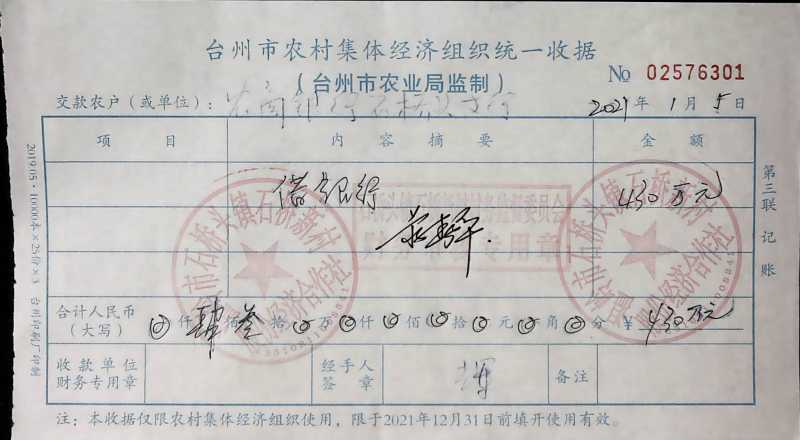 台州市农村集体经济组织统一收据
(台州市农业局监制)
№ 02576301
交款农户(或单位): 农商银行石桥头支行
2021年1月5日
项目 内容摘要 金额
借银行 430万元
合计人民币(大写) ⊗仟肆佰叁拾⊗万⊗仟⊗佰⊗拾⊗元⊗角⊗分 ¥430万元
收款单位财务专用章 经手人签章 备注
注:本收据仅限农村集体经济组织使用,限于2021年12月31日前填开使用有效。
第三联 记账
2019.05·10000本×25份×3 台州印刷厂印制
市石桥头镇石桥新村
股份经济合作社
市石桥头镇石桥新村
股份经济合作社
石桥头镇石桥新村村务监督委员会
财务 专用章